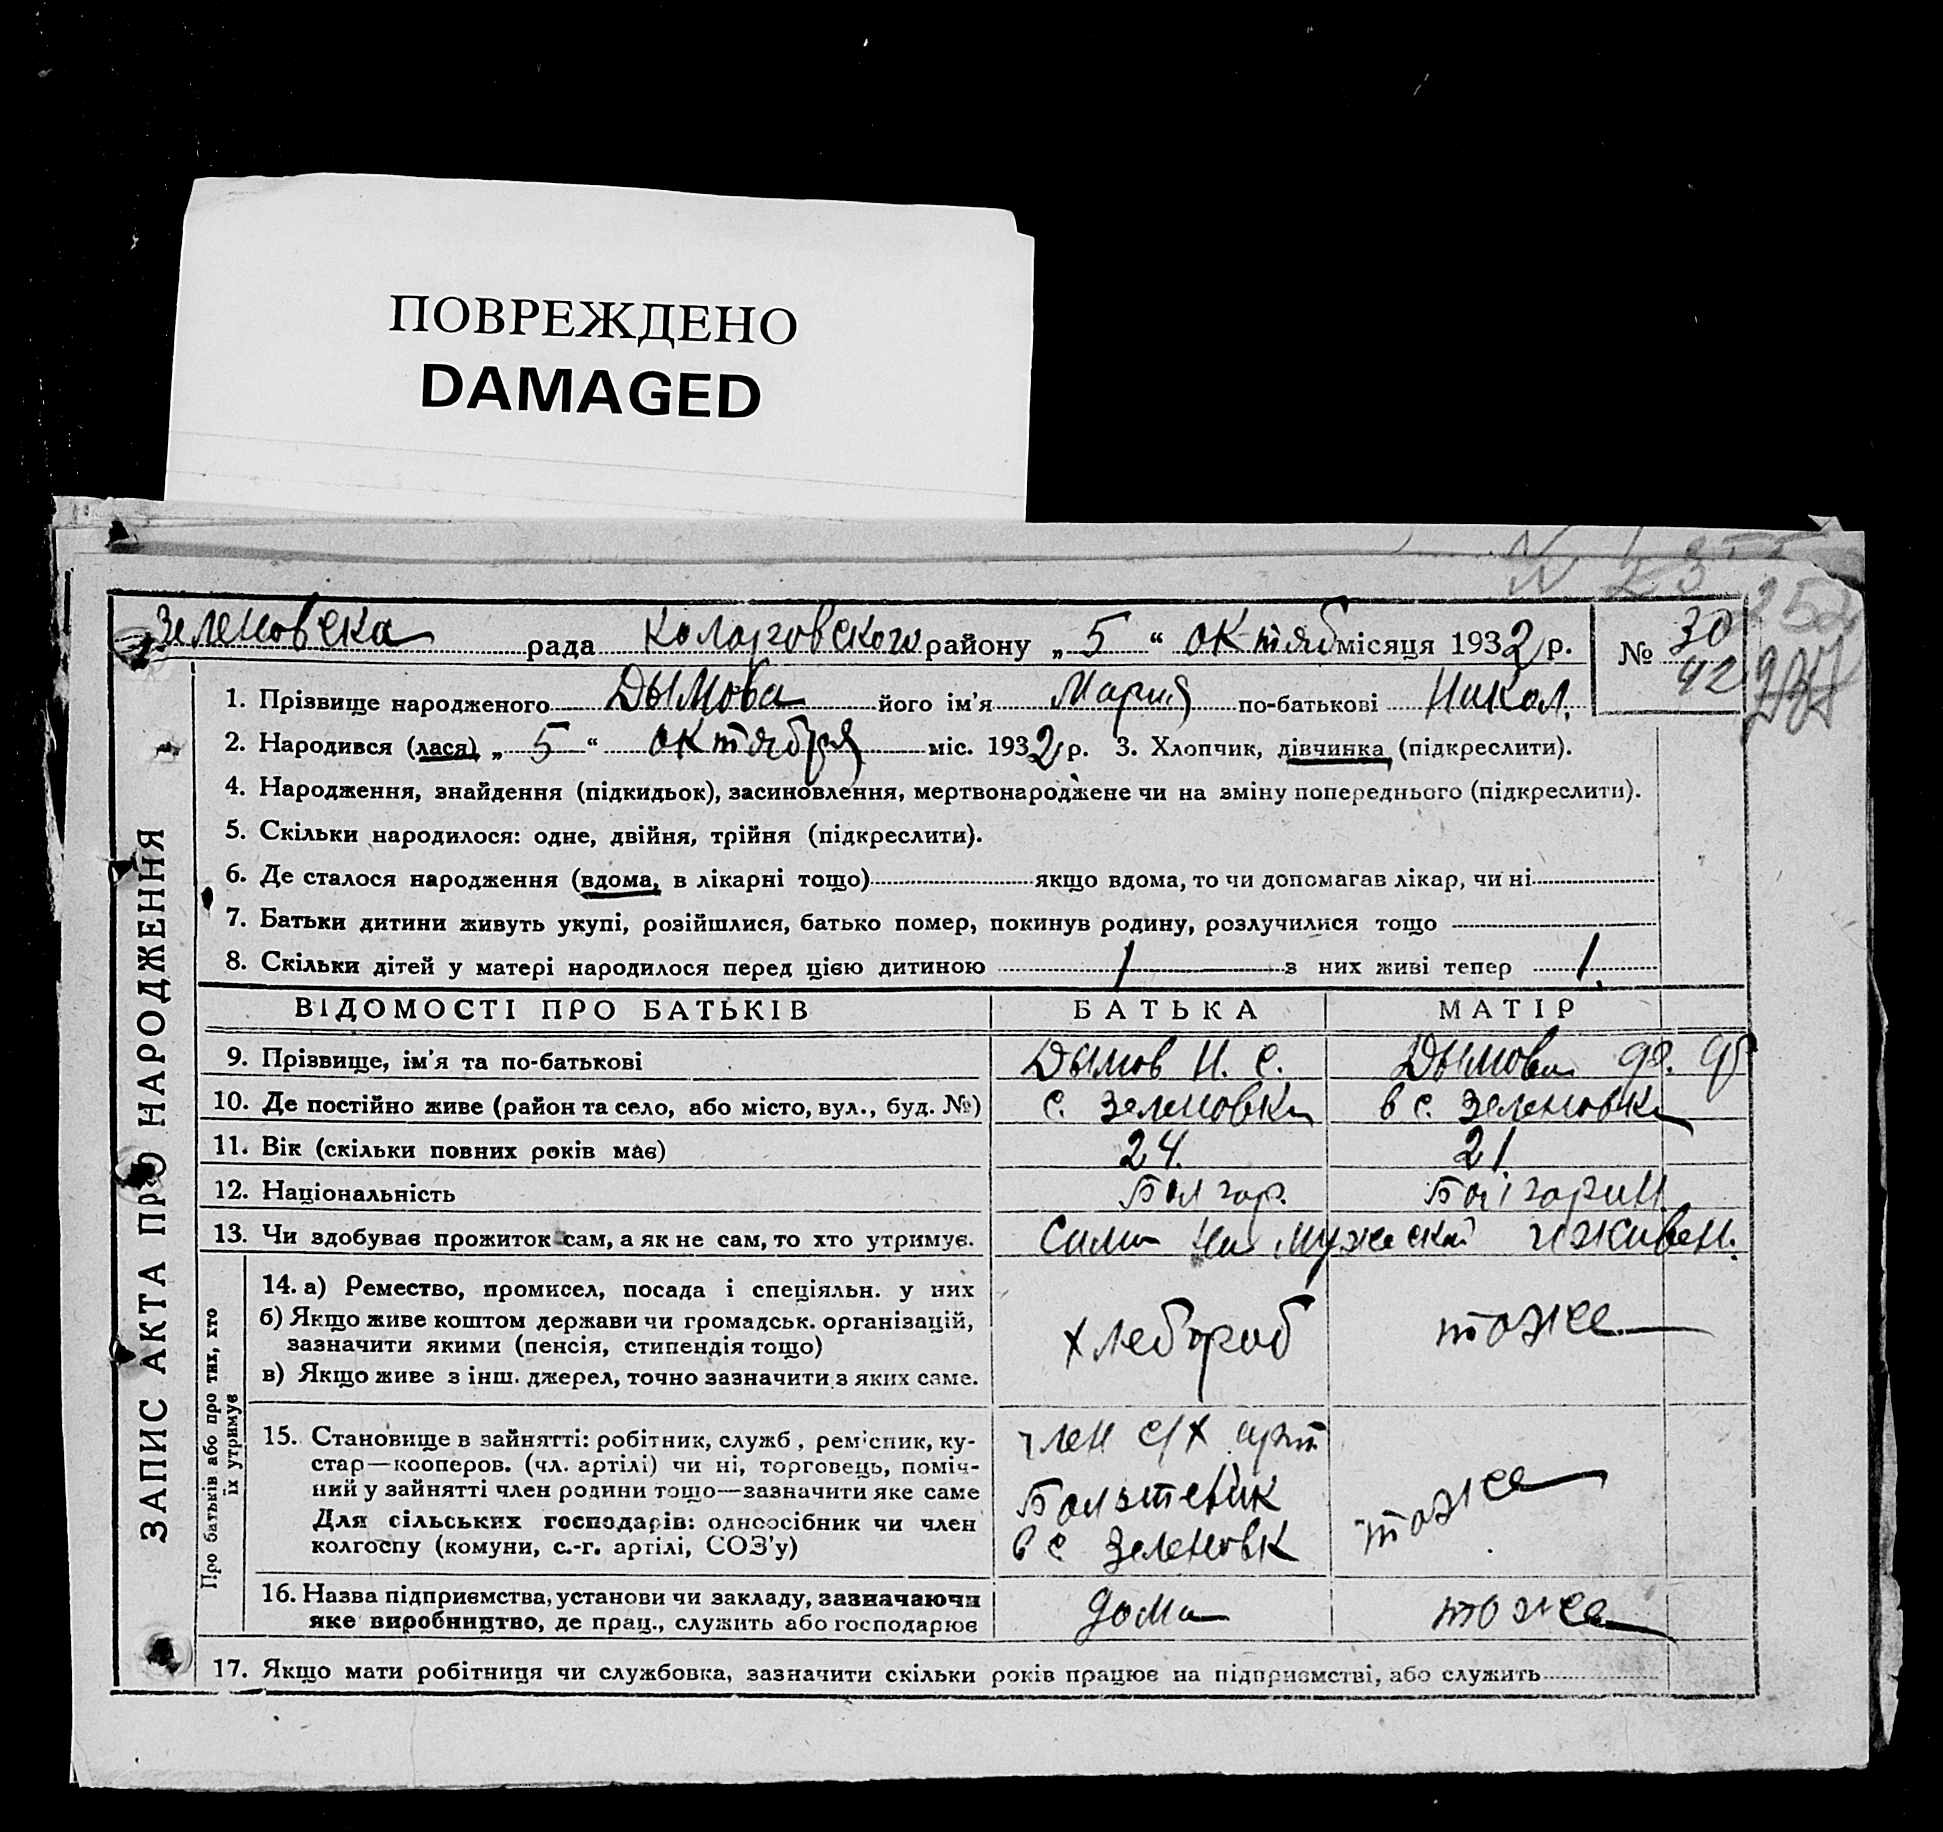 ПОВРЕЖДЕНО
DAMAGED
N 23
252
Зеленовска рада Коларовского району „5“ октяб місяця 1932 р. № 30
42
1. Прізвище народженого Дымова його ім'я Мария по-батькові Никол.
2. Народився (лася) „5“ октября міс. 1932 р. 3. Хлопчик, дівчинка (підкреслити).
4. Народження, знайдення (підкидьок), засиновлення, мертвонароджене чи на зміну попереднього (підкреслити).
5. Скільки народилося: одне, двійня, трійня (підкреслити).
6. Де сталося народження (вдома, в лікарні тощо) якщо вдома, то чи допомагав лікар, чи ні
7. Батьки дитини живуть укупі, розійшлися, батько помер, покинув родину, розлучилися тощо
8. Скільки дітей у матері народилося перед цією дитиною 1 з них живі тепер 1.
ВІДОМОСТІ ПРО БАТЬКІВ БАТЬКА МАТІР
9. Прізвище, ім'я та по-батькові Дымов Н. С. Дымова
10. Де постійно живе (район та село, або місто, вул., буд. №) с. Зеленовка в с. Зеленовка
11. Вік (скільки повних років має) 24. 21.
12. Національність Болгар. Болгарин
13. Чи здобуває прожиток сам, а як не сам, то хто утримує. Сам на мужеской иживен.
14. а) Ремество, промисел, посада і спеціяльн. у них
б) Якщо живе коштом держави чи громадськ. організацій,
зазначити якими (пенсія, стипендія тощо) хлебороб тоже
в) Якщо живе з інш. джерел, точно зазначити з яких саме.
15. Становище в зайнятті: робітник, служб., рем'сник, ку-
стар—кооперов. (чл. артілі) чи ні, торговець, поміч-
ний у зайнятті член родини тощо—зазначити яке саме
Для сільських господарів: одноосібник чи член
колгоспу (комуни, с.-г. артілі, СОЗ'у)
член с/х арт
Большевик
в с Зеленовк
тоже
16. Назва підприємства, установи чи закладу, зазначаючи
яке виробництво, де прац., служить або господарює дома тоже
17. Якщо мати робітниця чи службовка, зазначити скільки років працює на підприємстві, або служить
ЗАПИС АКТА ПРО НАРОДЖЕННЯ
Про батьків або про тих, хто
їх утримує